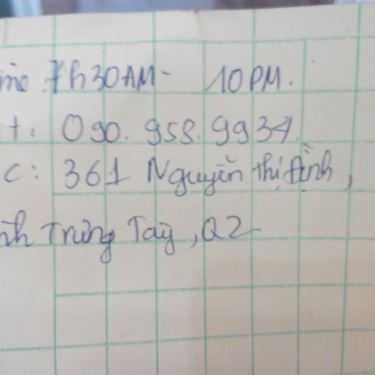 me 7h30AM - 10PM.
t: 090. 958. 9934
C: 361 Nguyễn Thị Định,
nh Trưng Tây, Q2